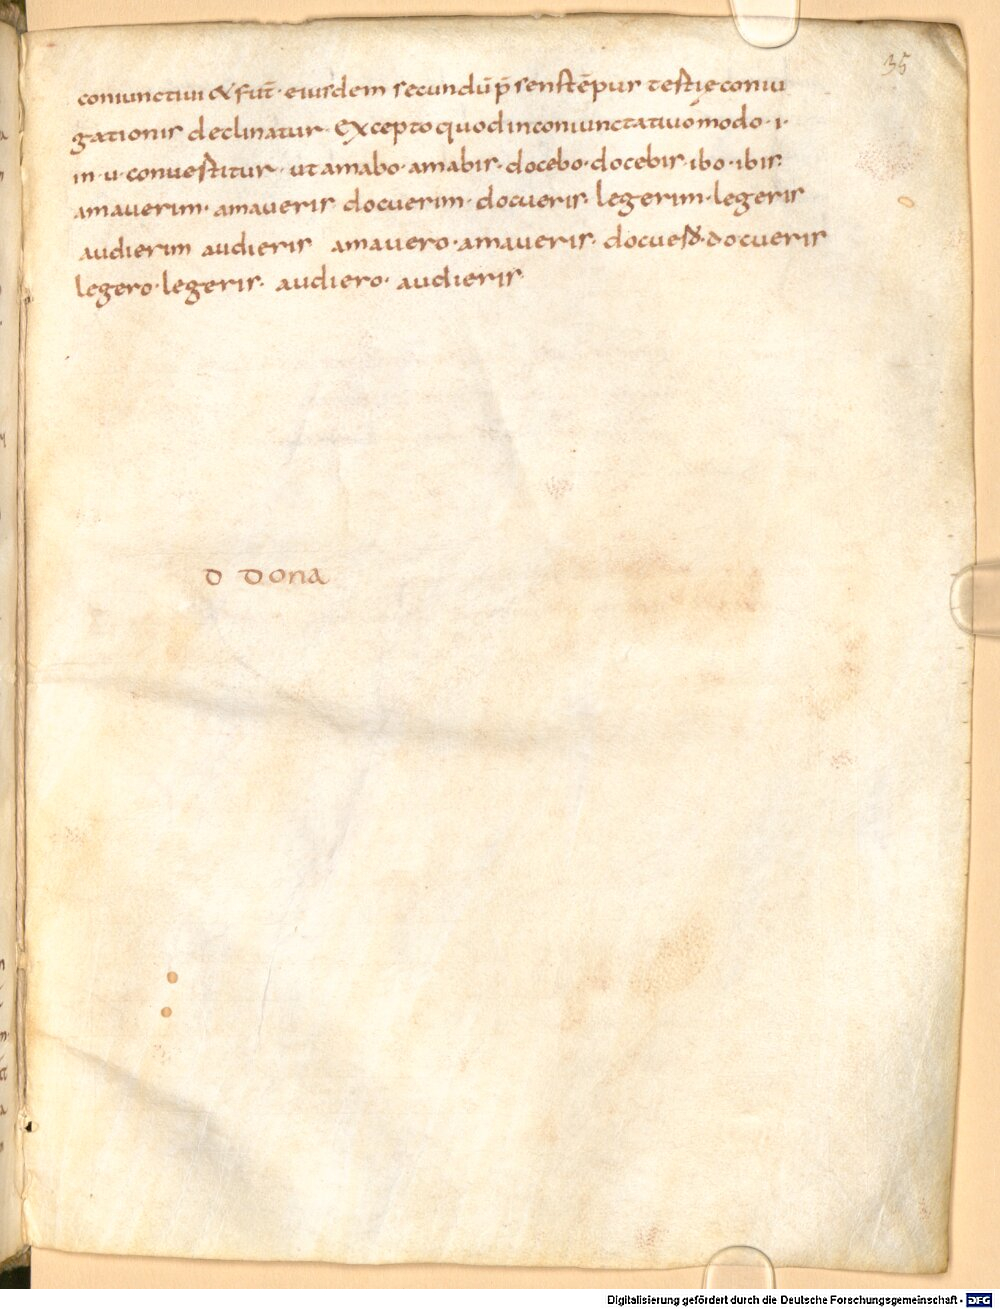 35
coniunctiui & fut̄· eiusdem secundū p̄sens tēpus tertię coniu
gationis declinatur· Excepto quod in coniunctatiuo modo ·i·
in ·u· conuertitur· ut amabo· amabis· docebo· docebis· ibo· ibis·
amauerim· amaueris docuerim· docueris· legerim· legeris
audierim audieris amauero· amaueris· docuero· docueris
legero· legeris· audiero· audieris·
d dona
Digitalisierung gefördert durch die Deutsche Forschungsgemeinschaft - DFG